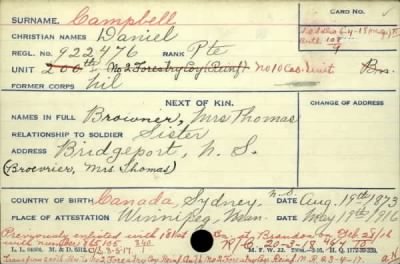 SURNAME. Campbell CARD NO.
CHRISTIAN NAMES Daniel
REGL. NO. 922476 RANK Pte
UNIT 200th, No 2 Forestry Coy (Reinf) No 10 Cas. Unit Bn.
FORMER CORPS Nil
NEXT OF KIN. CHANGE OF ADDRESS
NAMES IN FULL Browner, Mrs Thomas
RELATIONSHIP TO SOLDIER Sister
ADDRESS Bridgeport, N. S.
(Brownier, Mrs Thomas)
COUNTRY OF BIRTH Canada, Sydney N.S. DATE Aug. 19th 1873
PLACE OF ATTESTATION Winnipeg, Man. DATE May 18th 1916
Previously enlisted with 181st at Brandon on Feb 28/16
with number 865105 R/O 20-3-18
M. F. W. 22
Transferred No 2 Forestry Coy Reinf Auth No 2 Forestry Coy Reinf 23-4-17